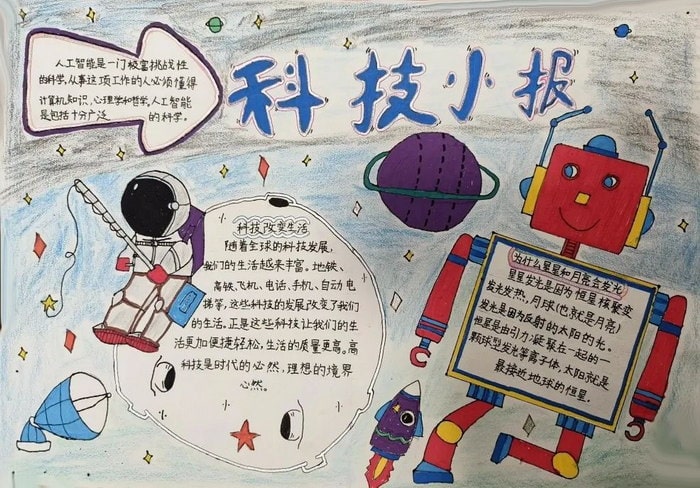 人工智能是一门极富挑战性
的科学,从事这项工作的人必须懂得
计算机知识,心理学和哲学,人工智能
是包括十分广泛 的科学。
科技小报
科技改变生活
随着全球的科技发展,
我们的生活越来丰富。地铁、
高铁、飞机、电话、手机、自动电
梯等,这些科技的发展改变了我们
的生活。正是这些科技让我们的生
活更加便捷轻松,生活的质量更高。高
科技是时代的必然,理想的境界
必然。
为什么星星和月亮会发光
星星发光是因为恒星核聚变
发光发热,月球(也就是月亮)
发光是因为反射的太阳的光。
恒星是由引力凝聚在一起的一
颗球型发光等离子体,太阳就是
最接近地球的恒星。